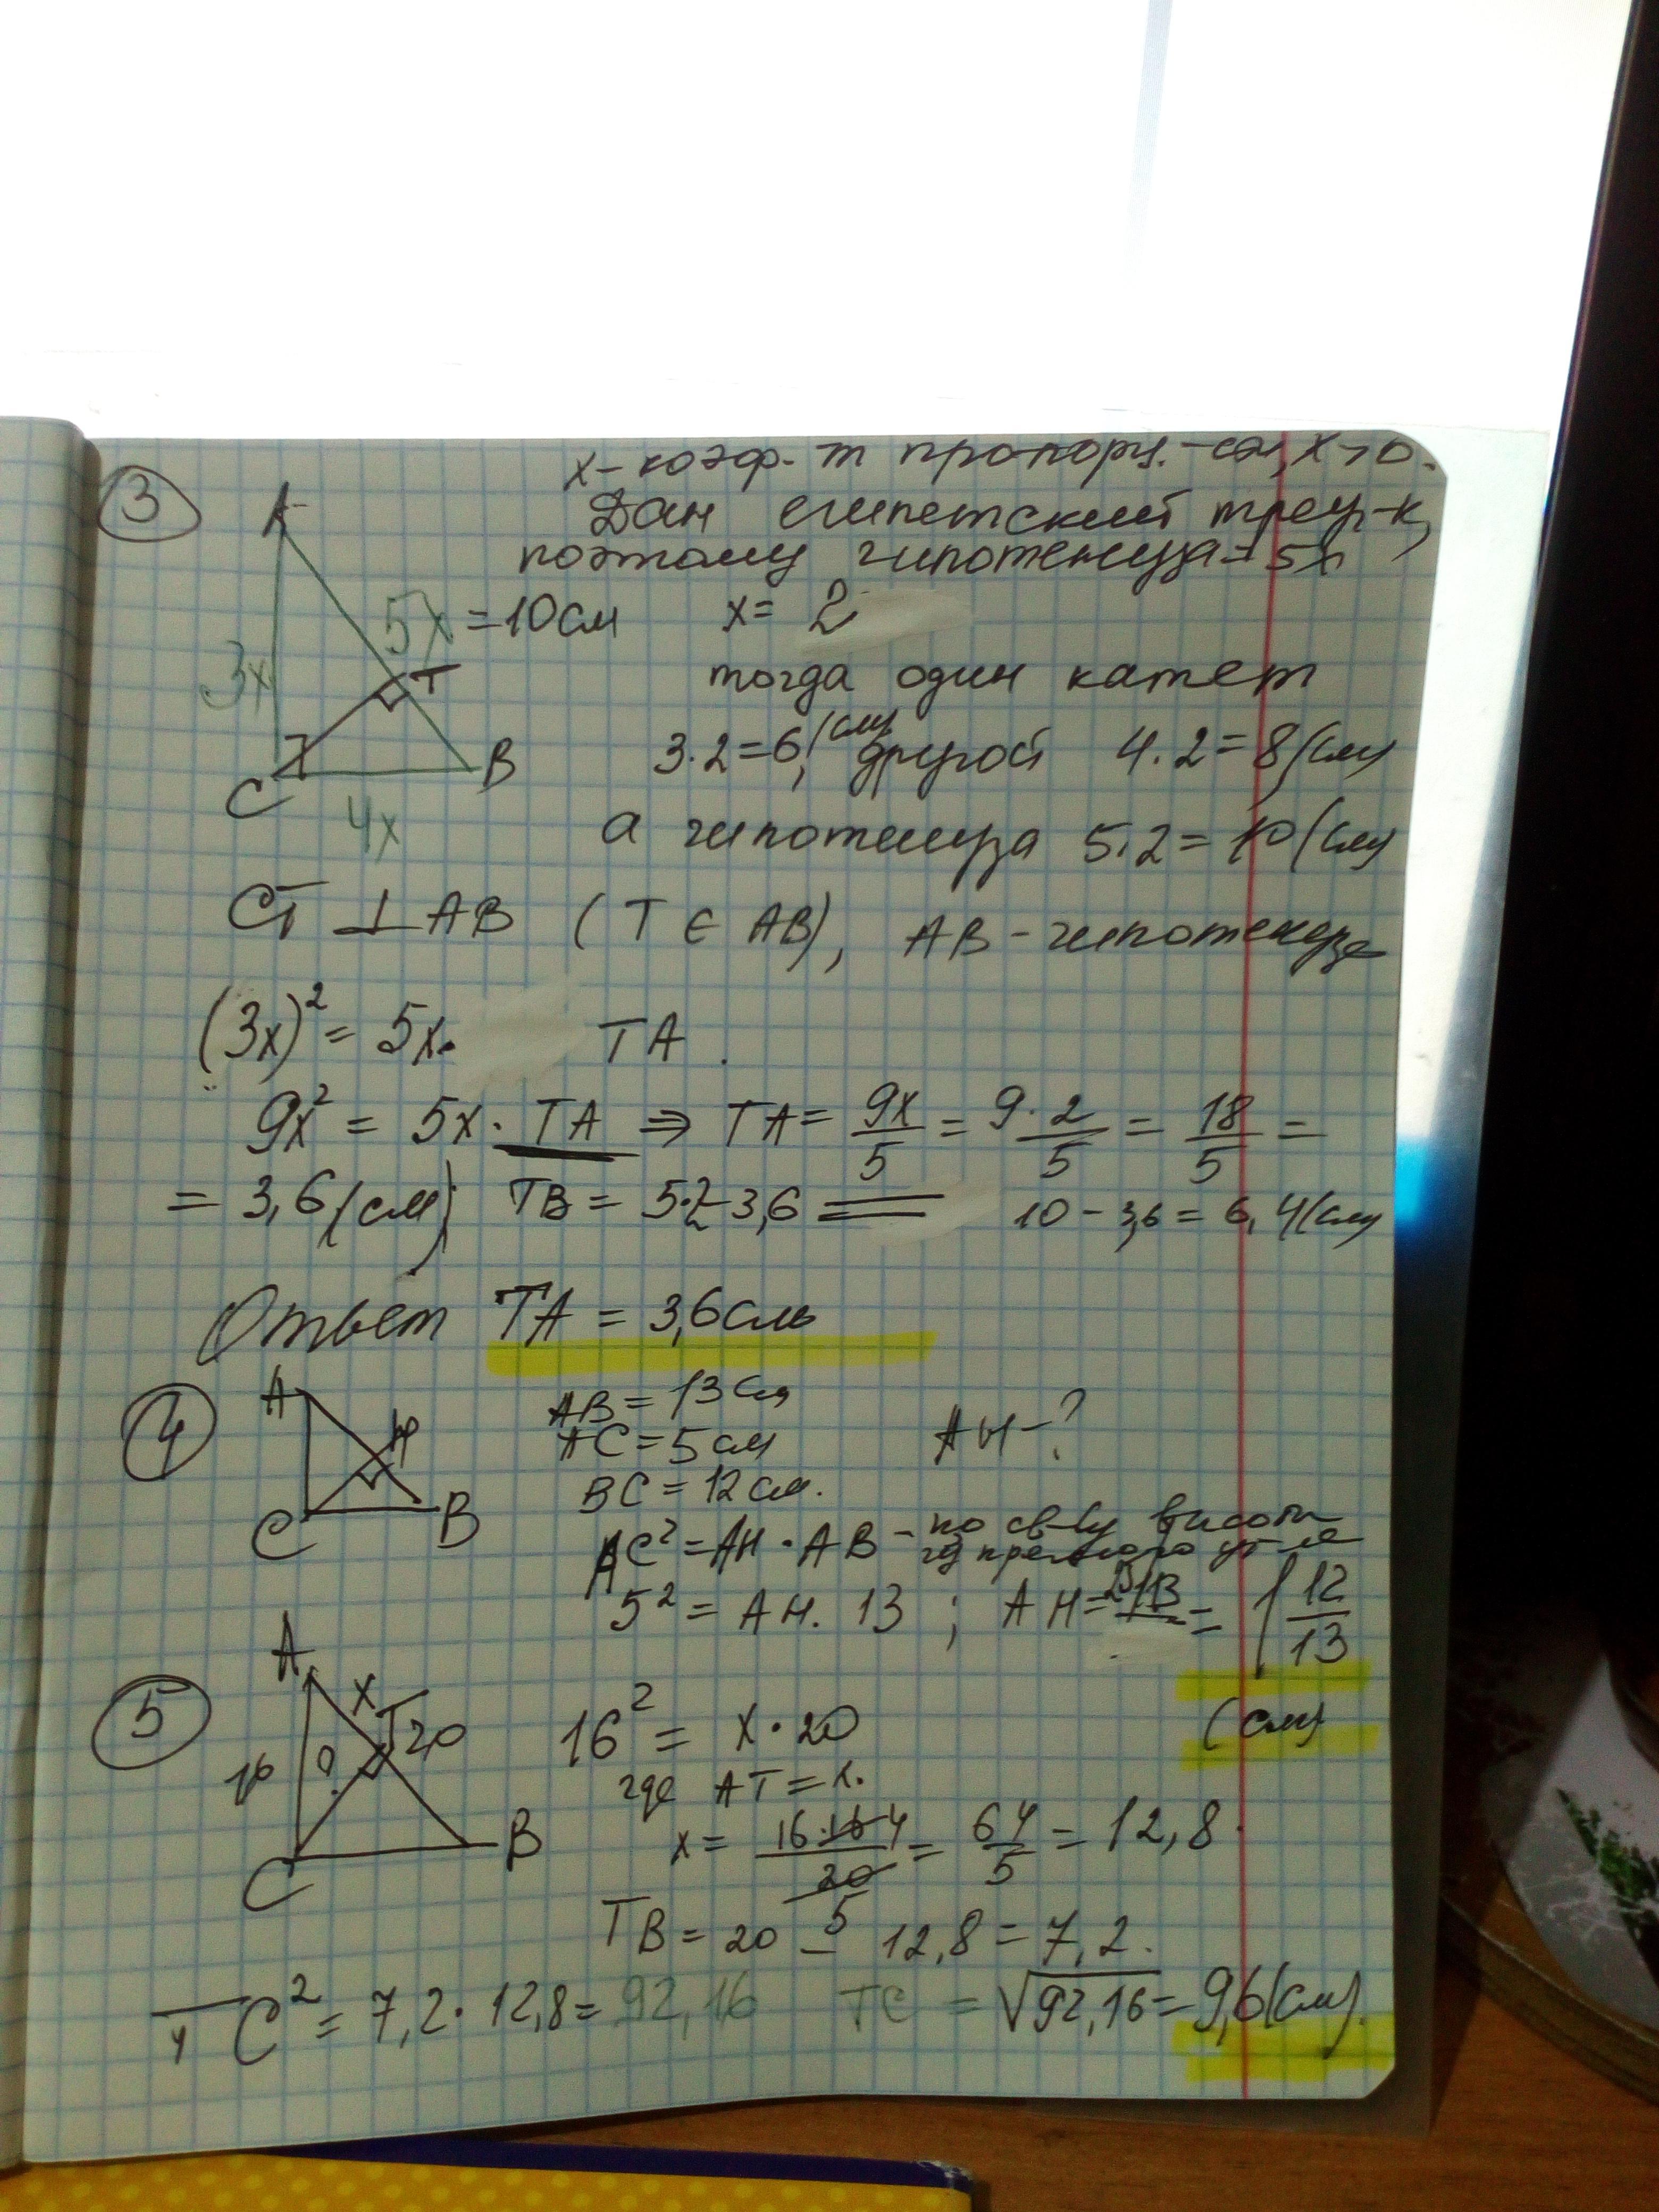 x - коэф-т пропорц.-сти, x>0.
3
Дан египетский треуг-к,
поэтому гипотенуза = 5x
A
5x = 10 см
x = 2
3x
T
тогда один катет
3·2=6(см), другой 4·2=8(см)
C
B
4x
а гипотенуза 5·2=10(см)
CT ⊥ AB (T ∈ AB), AB - гипотенуза
(3x)² = 5x· TA.
9x² = 5x · TA ⇒ TA = 9x/5 = 9·2/5 = 18/5 =
= 3,6(см); TB = 5·2-3,6 = 10 - 3,6 = 6,4(см)
Ответ TA = 3,6 см
4
A
H
C
B
AB = 13 см
AC = 5 см
BC = 12 см.
AH-?
AC² = AH · AB - по св-ву высоты
из прямого угла
5² = AH · 13 ; AH = 25/13 = 1 12/13
(см)
5
A
x
T
20
16
?
C
B
16² = x · 20
где AT = x.
x = 16·16 4/20 5 = 64/5 = 12,8.
TB = 20 - 12,8 = 7,2.
TC² = 7,2 · 12,8 = 92,16 TC = √92,16 = 9,6(см).